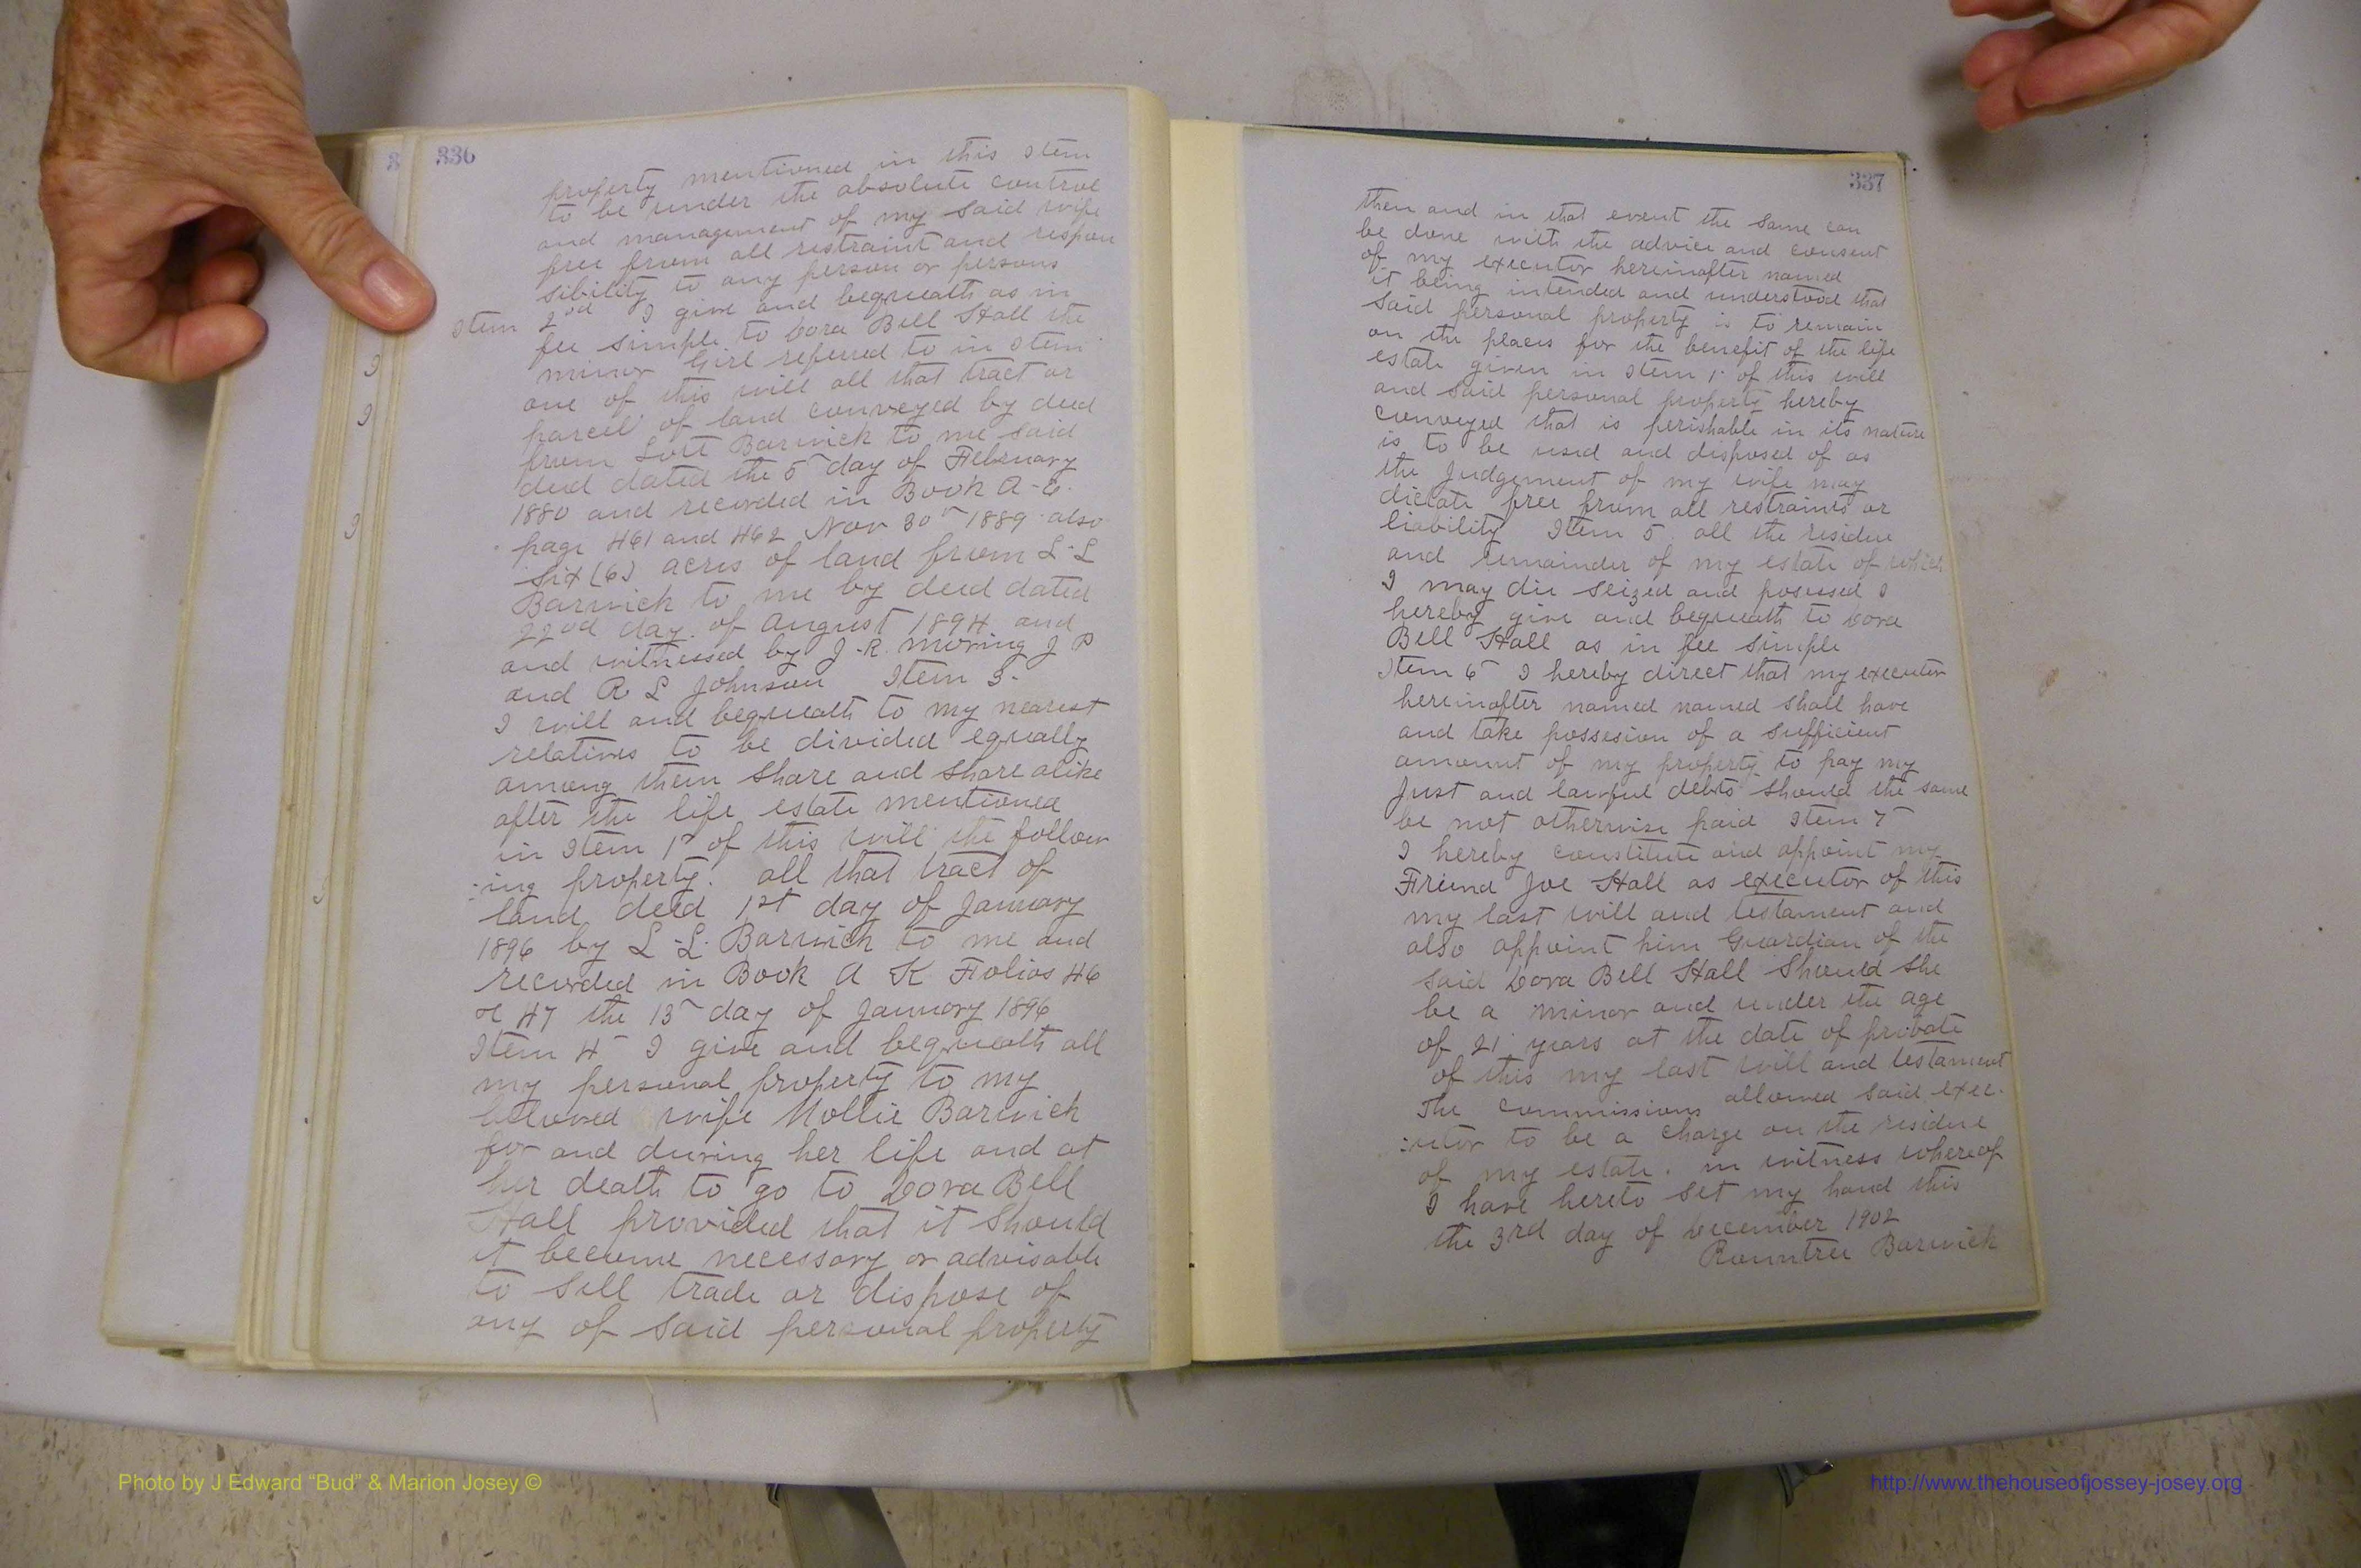 336
property mentioned in this Item
to be under the absolute control
and management of my said wife
free from all restraint and respon
sibility to any person or persons
Item 2nd I give and bequeath as in
fee simple to Dora Bell Hall the
minor Girl referred to in Item
one of this will all that tract or
parcel of land conveyed by deed
from Lott Barwick to me said
deed dated the 5 day of Febuary
1880 and recorded in Book A-
page 461 and 462 Nov 30 1889 also
six (6) acres of land from L. L
Barwick to me by deed dated
22nd day of August 1894 and
and witnessed by J. R. Moring J P
and R L Johnson Item 3.
I will and bequeath to my nearest
relatives to be divided equally
among them share and share alike
after the life estate mentioned
in Item 1st of this will the follow
ing property. all that tract of
land deed 1st day of January
1896 by L. L. Barwick to me and
recorded in Book A K Folios 46
& 47 the 13 day of January 1896
Item 4 I give and bequeath all
my personal property to my
beloved wife Mollie Barwick
for and during her life and at
her death to go to Dora Bell
Hall provided that it should
it become necessary or advisable
to sell trade or dispose of
any of said personal property
337
then and in that event the same can
be done with the advice and consent
of my executor hereinafter named
it being intended and understood that
said personal property is to remain
on the places for the benefit of the life
estate given in Item 1 of this will
and said personal property hereby
conveyed that is perishable in its nature
is to be used and disposed of as
the Judgement of my wife may
dictate free from all restraints or
liability Item 5 all the residue
and remainder of my estate of which
I may die seized and posessed I
hereby give and bequeath to Dora
Bell Hall as in fee simple
Item 6 I hereby direct that my executor
hereinafter named named shall have
and take possesion of a sufficient
amount of my property to pay my
Just and lawful debts should the same
be not otherwise paid Item 7
I hereby constitute and appoint my
Friend Joe Hall as executor of this
my last will and testament and
also appoint him Guardian of the
said Dora Bell Hall Should she
be a minor and under the age
of 21 years at the date of probate
of this my last will and testament
The commissions allowed said exec-
utor to be a charge on the residue
of my estate. in witness whereof
I have hereto set my hand this
the 3rd day of December 1902
Rountree Barwick
Photo by J Edward “Bud” & Marion Josey ©
http://www.thehouseofjossey-josey.org